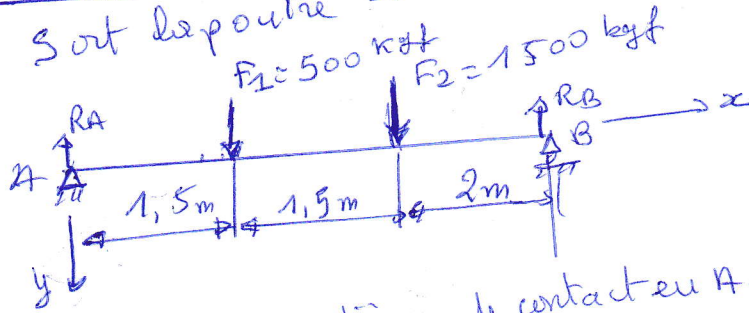 Soit la poutre
F1 = 500 kgf
F2 = 1500 kgf
RA
RB
x
A
B
1,5m
1,5m
2m
y
de contact en A